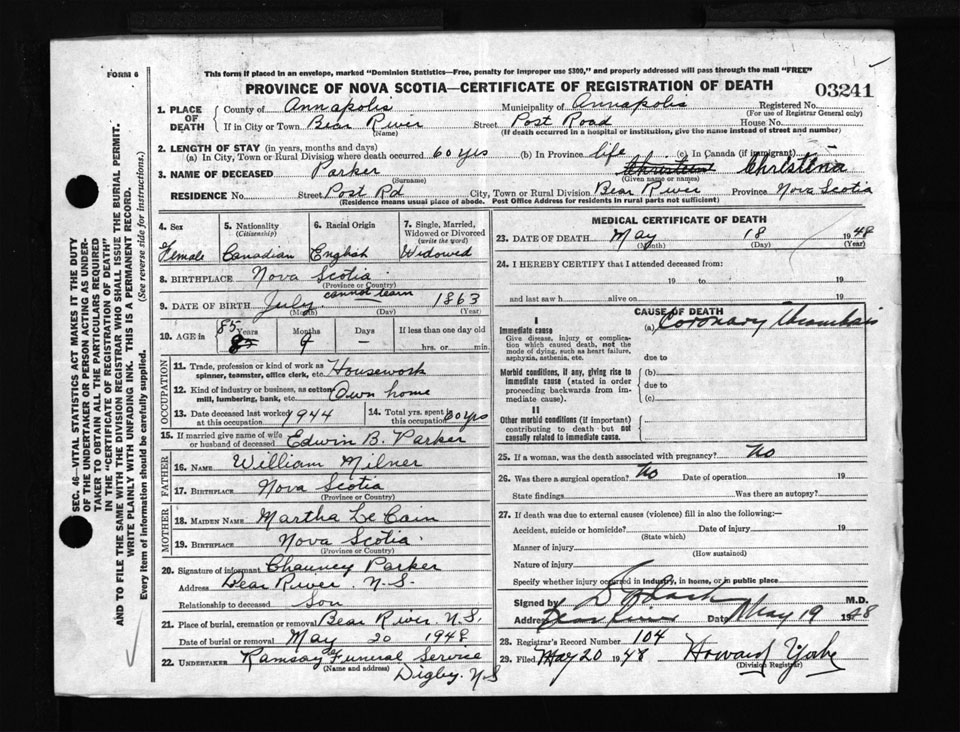 FORM 6
This form if placed in an envelope, marked "Dominion Statistics—Free, penalty for improper use $300," and properly addressed will pass through the mail "FREE"
PROVINCE OF NOVA SCOTIA—CERTIFICATE OF REGISTRATION OF DEATH 03241
1. PLACE OF DEATH County of Annapolis Municipality of Annapolis Registered No.
(For use of Registrar General only)
If in City or Town Bear River Street Post Road House No.
(Name) (If death occurred in a hospital or institution, give the name instead of street and number)
2. LENGTH OF STAY (in years, months and days)
(a) In City, Town or Rural Division where death occurred 60 yrs (b) In Province life (c) In Canada (if immigrant)
3. NAME OF DECEASED Parker Christina
(Surname) (Given name or names)
RESIDENCE No. Street Post Rd City, Town or Rural Division Bear River Province Nova Scotia
(Residence means usual place of abode. Post Office Address for residents in rural parts not sufficient)
SEC. 46—VITAL STATISTICS ACT MAKES IT THE DUTY
OF THE UNDERTAKER OR PERSON ACTING AS UNDER-
TAKER TO OBTAIN ALL THE PARTICULARS REQUIRED
IN THE "CERTIFICATE OF REGISTRATION OF DEATH"
AND TO FILE THE SAME WITH THE DIVISION REGISTRAR WHO SHALL ISSUE THE BURIAL PERMIT.
WRITE PLAINLY WITH UNFADING INK. THIS IS A PERMANENT RECORD.
Every item of information should be carefully supplied. (See reverse side for instructions.)
4. Sex 5. Nationality (Citizenship) 6. Racial Origin 7. Single, Married, Widowed or Divorced (write the word)
Female Canadian English Widowed
8. BIRTHPLACE Nova Scotia
(Province or Country)
9. DATE OF BIRTH July cannot learn 1863
(Month) (Day) (Year)
10. AGE in 85 Years Months 9 Days — If less than one day old
hrs. or min.
OCCUPATION
11. Trade, profession or kind of work as spinner, teamster, office clerk, etc. Housework
12. Kind of industry or business, as cotton mill, lumbering, bank, etc. Own home
13. Date deceased last worked at this occupation 1944 14. Total yrs. spent in this occupation 60 yrs
15. If married give name of wife or husband of deceased Edwin B. Parker
FATHER
16. NAME William Milner
17. BIRTHPLACE Nova Scotia
(Province or Country)
MOTHER
18. MAIDEN NAME Martha Le Cain
19. BIRTHPLACE Nova Scotia
(Province or Country)
20. Signature of informant Chauncey Parker
Address Bear River. N.S.
Relationship to deceased Son
21. Place of burial, cremation or removal Bear River. N.S.
Date of burial or removal May 20 1948
22. UNDERTAKER Ramsay Funeral Service
(Name and address) Digby. N.S
MEDICAL CERTIFICATE OF DEATH
23. DATE OF DEATH May 18 1948
(Month) (Day) (Year)
24. I HEREBY CERTIFY that I attended deceased from:
19 to 19
and last saw h alive on 19
CAUSE OF DEATH
I
Immediate cause (a) Coronary Thrombosis
Give disease, injury or complication which caused death, not the mode of dying, such as heart failure, asphyxia, asthenia, etc. due to
Morbid conditions, if any, giving rise to immediate cause (stated in order proceeding backwards from immediate cause). (b)
due to
(c)
II
Other morbid conditions (if important) contributing to death but not causally related to immediate cause.
25. If a woman, was the death associated with pregnancy? No
26. Was there a surgical operation? No Date of operation 19
State findings Was there an autopsy?
27. If death was due to external causes (violence) fill in also the following:—
Accident, suicide or homicide? Date of injury 19
(State which)
Manner of injury
(How sustained)
Nature of injury
Specify whether injury occurred in industry, in home, or in public place
Signed by M.D.
Address Date May 19 1948
28. Registrar's Record Number 104
29. Filed May 20 1948 Howard Yorke
(Division Registrar)